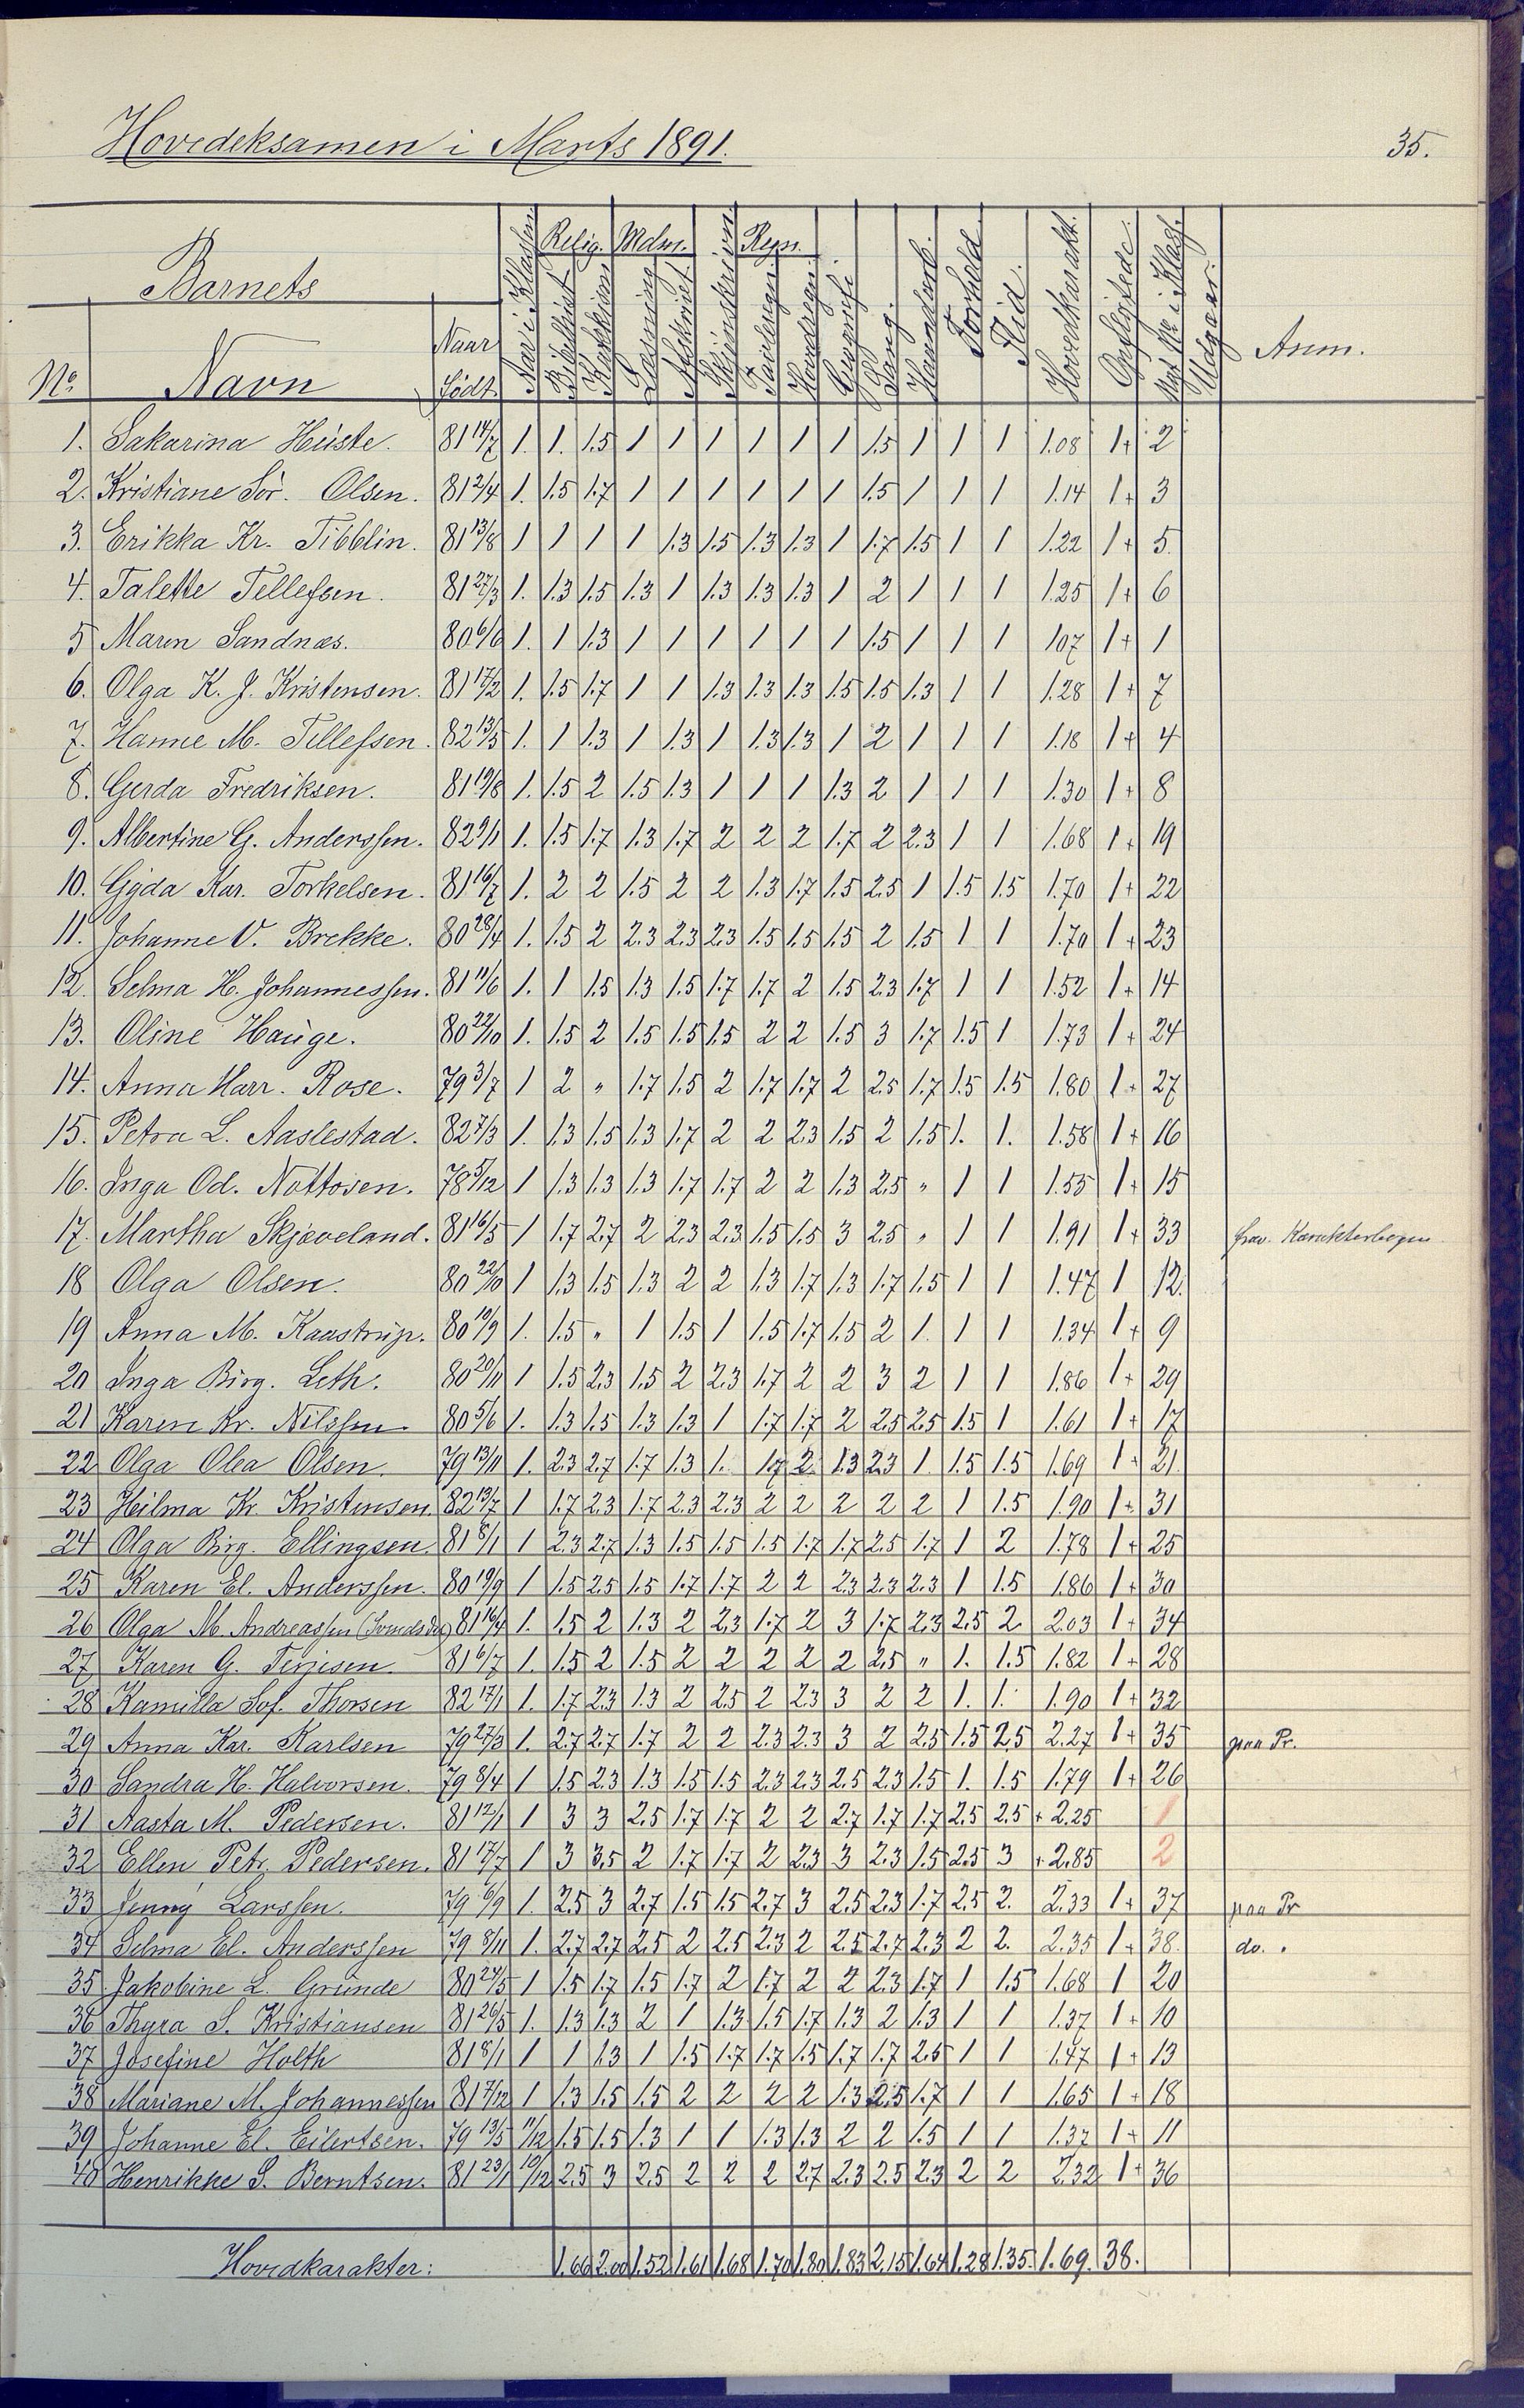 Hovedeksamen i Marts 1891. 35.
Barnets
Relig. Mdm. Regn.
No. Navn Naar født. Aar i Klassen. Bibelhist Læsning Afskrivn Skjønskrivn. Tavleregn. Hovedregn. Geografi Sang. Haandarb. Forhold Flid. Hovedkarakt. Opflyttede. Nyt No. i Klas. Udgaar. Anm.
1. Sakarina Heiste. 81 14/7 1. 1. 1.5 1 1 1 1 1 1 1.5 1 1 1 1.08 1+ 2
2. Kristiane Sör. Olsen. 81 2/4 1. 1.5 1.7 1 1 1 1 1 1 1.5 1 1 1 1.14 1+ 3
3. Erikka Kr. Tibblin. 81 13/8 1 1 1 1 1.3 1.5 1.3 1.3 1 1.7 1.5 1 1 1.22 1+ 5.
4. Talette Tellefsen. 81 27/3 1. 1.3 1.5 1.3 1 1.3 1.3 1.3 1 2 1 1 1 1.25 1+ 6
5 Maren Sandnæs. 80 6/6 1. 1 1.3 1 1 1 1 1 1 1.5 1 1 1 107 1+ 1
6. Olga K. J. Kristensen. 81 17/2 1. 1.5 1.7 1 1 1.3 1.3 1.3 1.5 1.5 1.3 1 1 1.28 1+ 7
7. Hanne M. Tellefsen. 82 13/5 1. 1 1.3 1 1.3 1 1.3 1.3 1 2 1 1 1 1.18 1+ 4
8. Gerda Fredriksen. 81 19/8 1. 1.5 2 1.5 1.3 1 1 1 1.3 2 1 1 1 1.30 1+ 8
9. Albertine G. Anderssen. 82 9/1 1. 1.5 1.7 1.3 1.7 2 2 2 1.7 2 2.3 1 1 1.68 1+ 19
10. Gyda Kar. Torkelsen. 81 16/7 1. 2 2 1.5 2 2 1.3 1.7 1.5 2.5 1 1.5 1.5 1.70 1+ 22
11. Johanne V. Brekke. 80 28/4 1. 1.5 2 2.3 2.3 2.3 1.5 1.5 1.5 2 1.5 1 1 1.70 1+ 23
12. Selma H. Johannessen. 81 11/6 1. 1 1.5 1.3 1.5 1.7 1.7 2 1.5 2.3 1.7 1 1 1.52 1+ 14
13. Oline Hauge. 80 22/10 1. 1.5 2 1.5 1.5 1.5 2 2 1.5 3 1.7 1.5 1 1.73 1+ 24
14. Anna Harr. Rose. 79 3/7 1 2 " 1.7 1.5 2 1.7 1.7 2 2.5 1.7 1.5 1.5 1.80 1+ 27
15. Petra L. Aaslestad. 82 7/3 1. 1.3 1.5 1.3 1.7 2 2 2.3 1.5 2 1.5 1. 1. 1.58 1+ 16
16. Inga Od. Nottosen. 78 5/12 1 1.3 1.3 1.3 1.7 1.7 2 2 1.3 2.5 " 1 1 1.55 1+ 15
17. Martha Skjæveland. 81 16/5 1 1.7 2.7 2 2.3 2.3 1.5 1.5 3 2.5 " 1 1 1.91 1+ 33 Karakterbogen
18 Olga Olsen. 80 22/10 1 1.3 1.5 1.3 2 2 1.3 1.7 1.3 1.7 1.5 1 1 1.47 1 12.
19 Anna M. Kaastrup. 80 10/9 1. 1.5 " 1 1.5 1 1.5 1.7 1.5 2 1. 1 1 1.34 1+ 9
20 Inga Birg. Leth. 80 20/11 1 1.5 2.3 1.5 2 2.3 1.7 2 2 3 2 1 1 1.86 1+ 29
21 Karen Kr. Nilssen 80 5/6 1. 1.3 1.5 1.3 1.3 1 1.7 1.7 2 2.5 2.5 1.5 1 1.61 1+ 17
22 Olga Olea Olsen. 79 13/11 1. 2.3 2.7 1.7 1.3 1. 1.7 2. 1.3 2.3 1 1.5 1.5 1.69 1+ 21.
23 Heilma Kr. Kristensen. 82 13/7 1 1.7 2.3 1.7 2.3 2.3 2 2 2 2 2 1 1.5 1.90 1+ 31
24 Olga Birg. Ellingsen. 81 8/1 1 2.3 2.7 1.3 1.5 1.5 1.5 1.7 1.7 2.5 1.7 1 2 1.78 1+ 25
25 Karen El. Anderssen. 80 19/9 1 1.5 2.5 1.5 1.7 1.7 2 2 2.3 2.3 2.3 1 1.5 1.86 1+ 30
26 Olga M. Andreassen 81 16/4 1. 1.5 2 1.3 2 2.3 1.7 2 3 1.7 2.3 2.5 2. 2.03 1+ 34
27 Karen G. Terjesen. 81 6/7 1. 1.5 2 1.5 2 2 2 2 2 2.5 " 1. 1.5 1.82 1+ 28
28 Kamilla Sof. Thorsen 82 17/1 1. 1.7 2.3 1.3 2 2.5 2 2.3 3 2 2 1. 1. 1.90 1+ 32
29 Anna Kar. Karlsen 79 27/3 1. 2.7 2.7 1.7 2 2 2.3 2.3 3 2 2.5 1.5 2.5 2.27 1+ 35 paa Pr.
30 Sandra H. Halvorsen. 79 8/4 1 1.5 2.3 1.3 1.5 1.5 2.3 2.3 2.5 2.3 1.5 1. 1.5 1.79 1+ 26
31 Aasta M. Pedersen. 81 12/1 1 3 3 2.5 1.7 1.7 2 2 2.7 1.7 1.7 2.5 2.5 + 2.25 1
32 Ellen Petr. Pedersen. 81 17/7 1 3 3.5 2 1.7 1.7 2 2.3 3 2.3 1.5 2.5 3 + 2.85 2
33 Jenny Larssen. 79 6/9 1. 2.5 3 2.7 1.5 1.5 2.7 3 2.5 2.3 1.7 2.5 2. 2.33 1+ 37 paa Pr
34 Selma El. Anderssen 79 8/11 1. 2.7 2.7 2.5 2 2.5 2.3 2 2.5 2.7 2.3 2 2. 2.35 1+ 38. do. "
35 Jakobine L. Grunde 80 24/5 1 1.5 1.7 1.5 1.7 2 1.7 2 2 2.3 1.7 1 1.5 1.68 1 20
36 Thyra S. Kristiansen 81 26/5 1. 1.3 1.3 2 1 1.3 1.5 1.7 1.3 2 1.3 1 1 1.37 1+ 10
37 Josefine Holth 81 8/1 1 1 1.3 1 1.5 1.7 1.7 1.5 1.7 1.7 2.5 1 1 1.47 1+ 13
38 Mariane M. Johannessen 81 7/12 1 1.3 1.5 1.5 2 2 2 2 1.3 2.5 1.7 1 1 1.65 1+ 18
39 Johanne El. Eilertsen. 79 13/5 11/12 1.5 1.5 1.3 1 1 1.3 1.3 2 2 1.5 1 1 1.37 1+ 11
40 Henrikke S. Berntsen. 81 23/1 10/12 2.5 3 2.5 2 2 2 2.7 2.3 2.5 2.3 2 2 2.32 1+ 36
Hovedkarakter: 1.66 2.00 1.52 1.61 1.68 1.70 1.80 1.83 2.15 1.64 1.28 1.35. 1.69. 38.